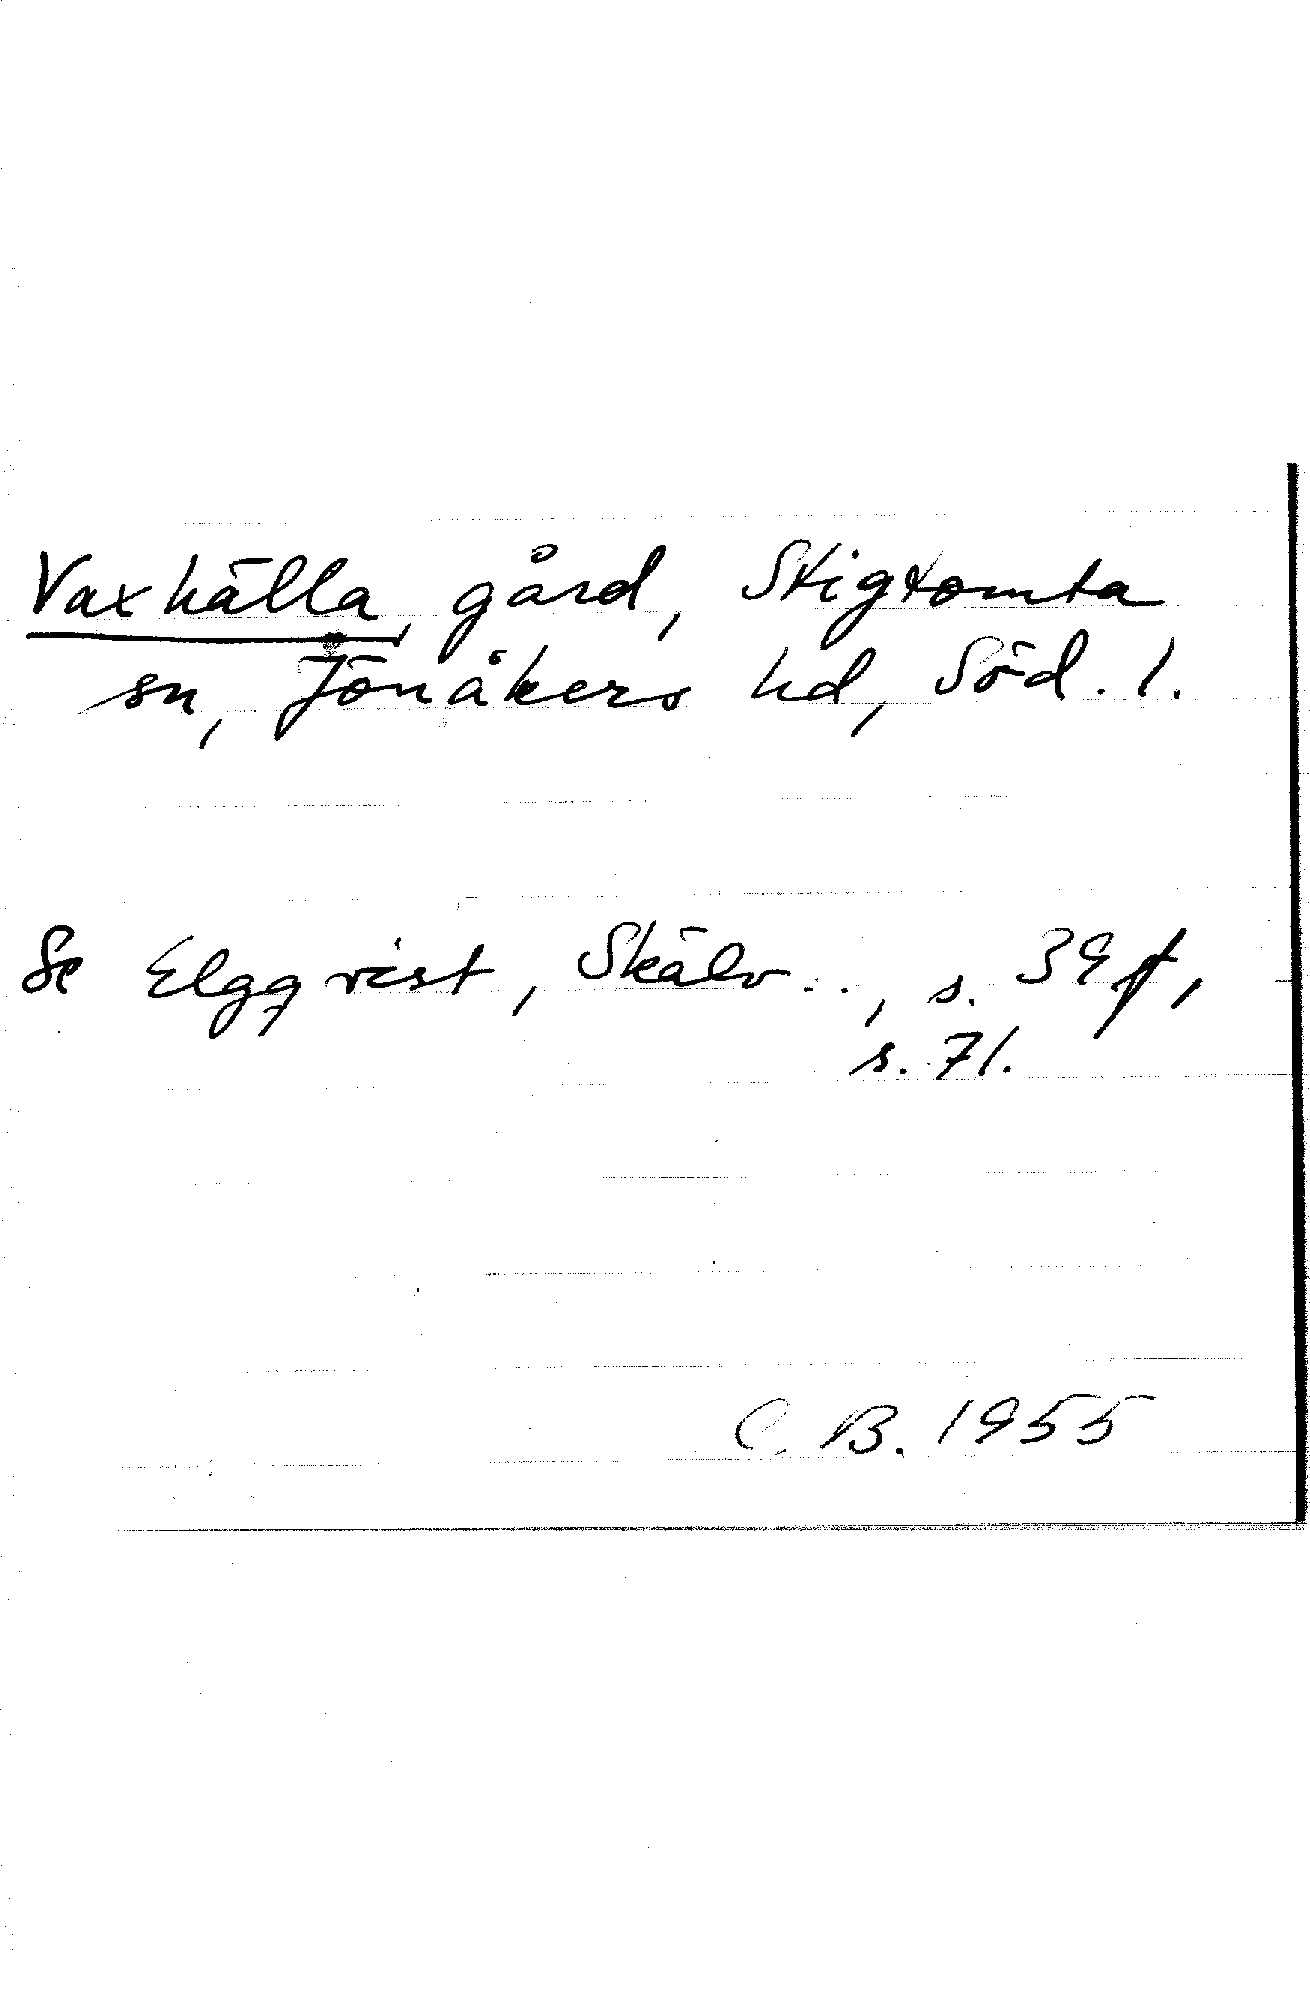 Vaxhälla, gård, Stigtomta
sn, Jönåkers hd, Söd. l.
Se Elgqvist, Skälv..., s. 39 f,
s. 71.
C. B. 1955